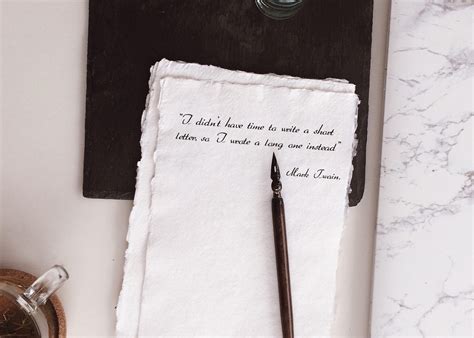 "I didn't have time to write a short
letter, so I wrote a long one instead"
Mark Twain.